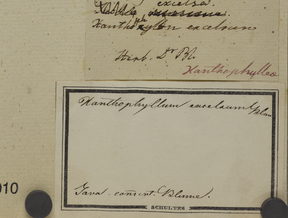 excelsa
Xanthophyllon excelsum
Herb. Dr Bl.
Xanthophyllea
Xanthophyllum excelsum Blum
Java. comm. Blume.
SCHULTES
010